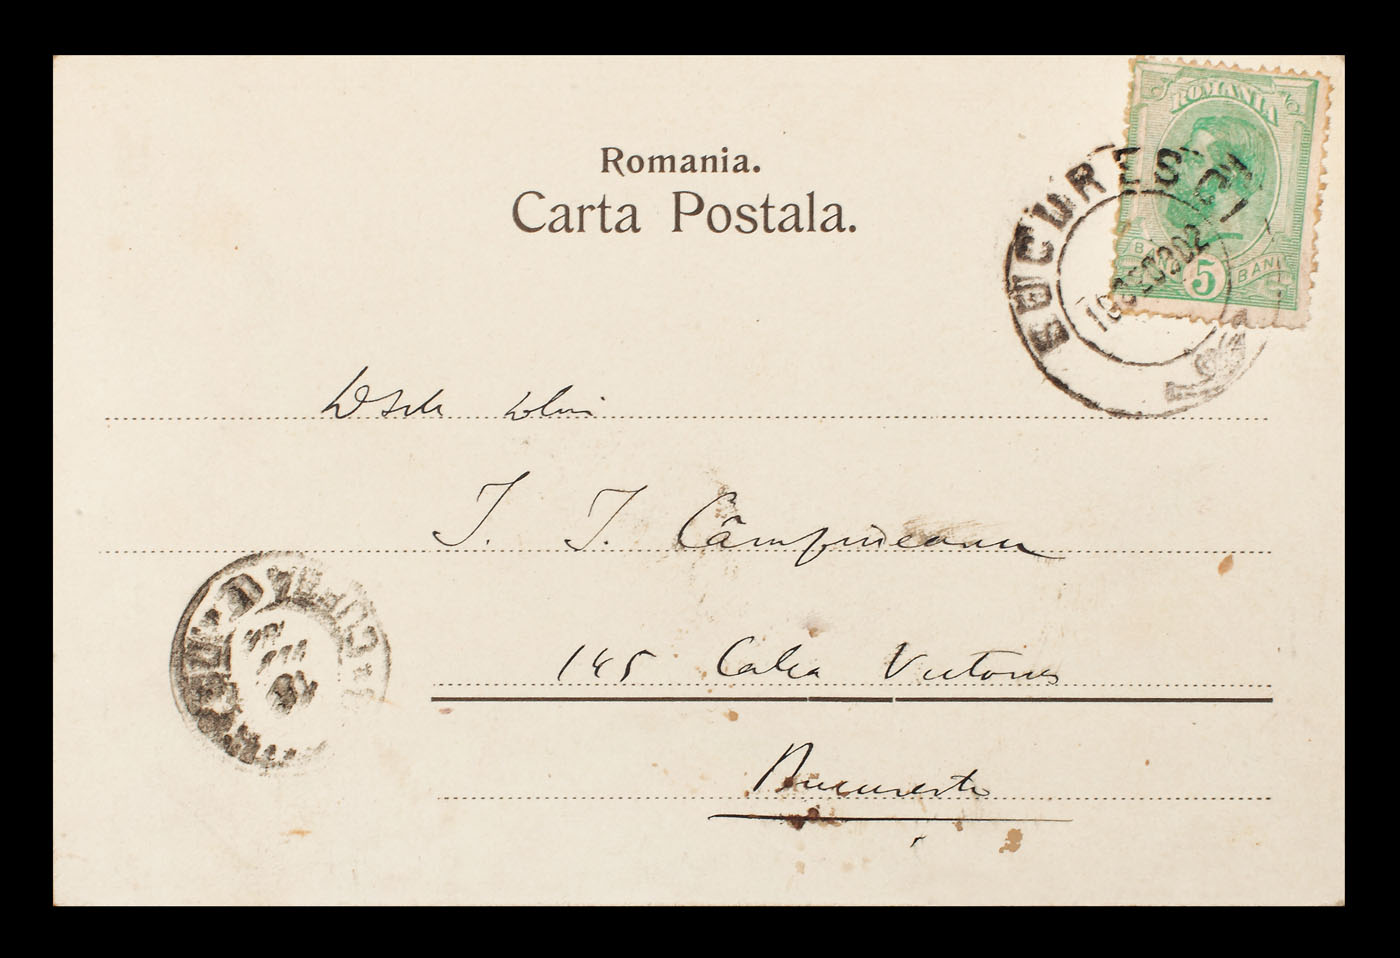 ROMANIA
Romania.
Carta Postala.
BUCURESCI
BANI 5 BANI
D Sale D lui
I. I. Câmpineanu
145 Calea Victoriei
Bucuresti